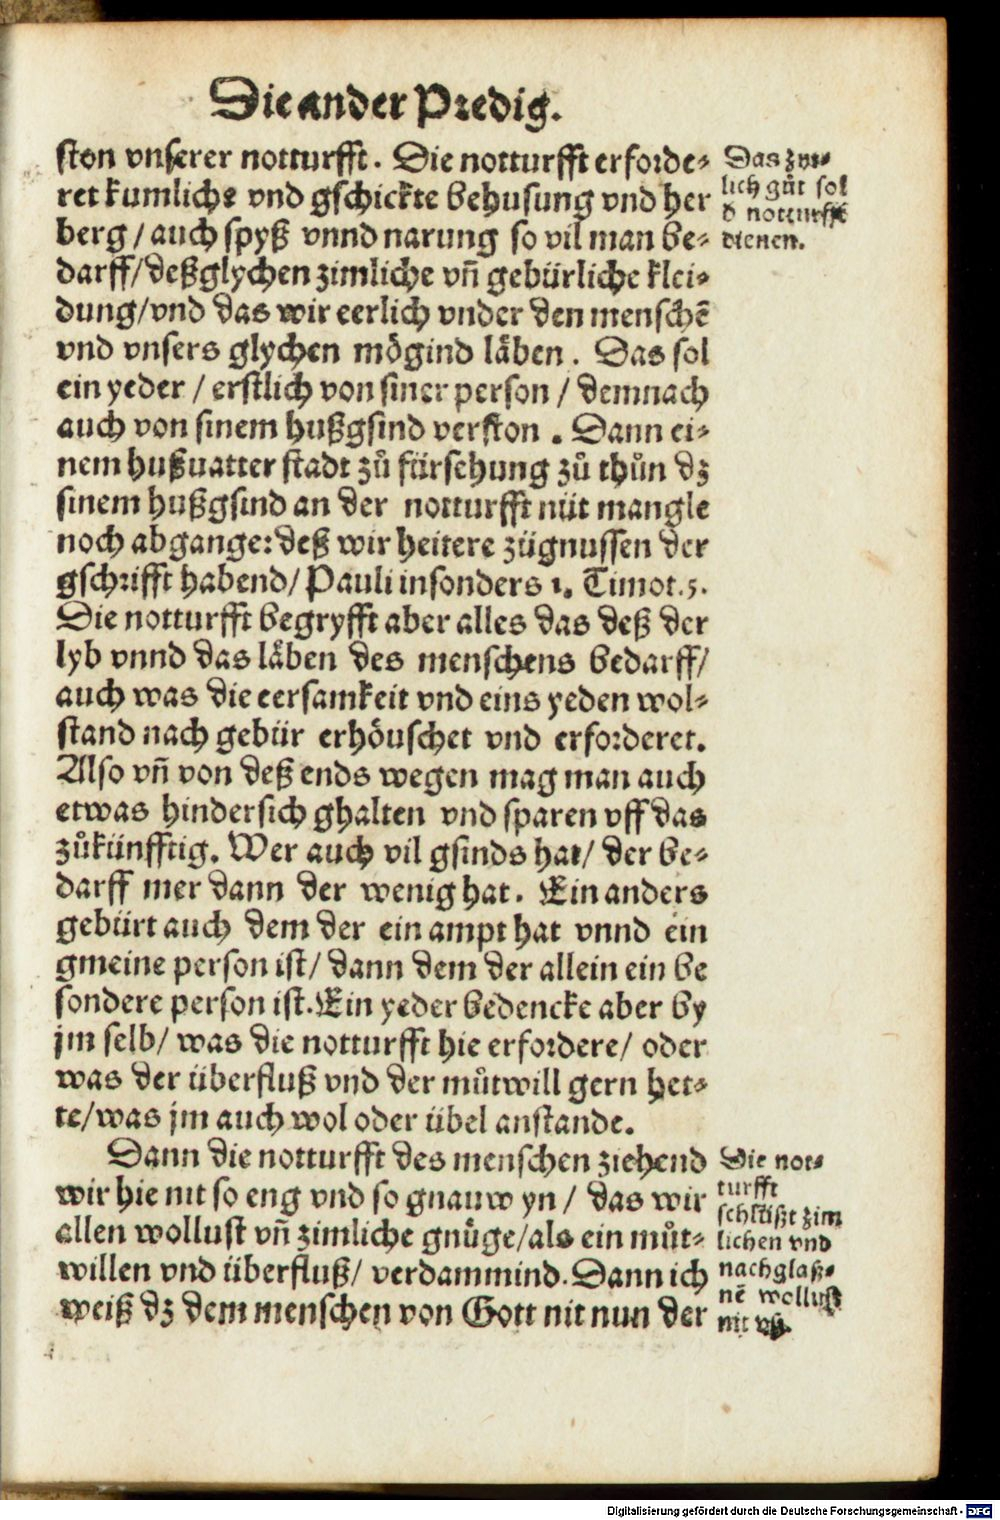 Die ander Predig.
ston vnserer notturfft. Die notturfft erforde⸗
ret kumliche vnd gschickte behusung vnd her
berg / auch spyß vnnd narung so vil man be⸗
darff / deßglychen zimliche vñ gebürliche klei⸗
dung / vnd das wir eerlich vnder den menschẽ
vnd vnsers glychen mögind läben. Das sol
ein yeder / erstlich von siner person / demnach
auch von sinem hußgsind verston. Dann ei⸗
nem hußuatter stadt zů fürsehung zů thůn dz
sinem hußgsind an der notturfft nüt mangle
noch abgange: deß wir heitere zügnussen der
gschrifft habend / Pauli insonders 1. Timot. 5.
Die notturfft begryfft aber alles das deß der
lyb vnnd das läben des menschens bedarff /
auch was die eersamkeit vnd eins yeden wol⸗
stand nach gebür erhöuschet vnd erforderet.
Also vñ von deß ends wegen mag man auch
etwas hindersich ghalten vnd sparen vff das
zůkünfftig. Wer auch vil gsinds hat / der be⸗
darff mer dann der wenig hat. Ein anders
gebürt auch dem der ein ampt hat vnnd ein
gmeine person ist / dann dem der allein ein be
sondere person ist. Ein yeder bedencke aber by
jm selb / was die notturfft hie erfordere / oder
was der überfluß vnd der můtwill gern het⸗
te / was jm auch wol oder übel anstande.
Dann die notturfft des menschen ziehend
wir hie nit so eng vnd so gnauw yn / das wir
allen wollust vñ zimliche gnüge / als ein můt⸗
willen vnd überfluß / verdammind. Dann ich
weiß dz dem menschen von Gott nit nun der
Das zyt⸗
lich gůt sol
d notturfft
dienen.
Die not⸗
turfft
schlüßt zim
lichen vnd
nachglaß⸗
nẽ wollust
nit vß.
Digitalisierung gefördert durch die Deutsche Forschungsgemeinschaft - DFG